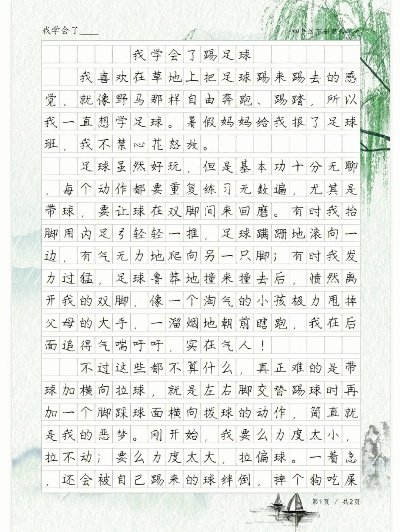 我学会了____
我学会了踢足球
我喜欢在草地上把足球踢来踢去的感
觉，就像野马那样自由奔跑、踢踏，所以
我一直想学足球。暑假妈妈给我报了足球
班，我不禁心花怒放。
足球虽然好玩，但是基本功十分无聊
，每个动作都要重复练习无数遍，尤其是
带球，要让球在双脚间来回磨。有时我抬
脚用内足弓轻轻一推，足球蹒跚地滚向一
边，有气无力地爬向另一只脚；有时我发
力过猛，足球鲁莽地撞来撞去后，愤然离
开我的双脚，像一个淘气的小孩极力甩掉
父母的大手，一溜烟地朝前瞎跑，我在后
面追得气喘吁吁，实在气人！
不过这些都不算什么，真正难的是带
球加横向拉球，就是左右脚交替踢球时再
加一个脚踩球面横向拨球的动作，简直就
是我的恶梦。刚开始，我要么力度太小，
拉不动；要么力度太大，拉偏球。一着急
，还会被自己踢来的球绊倒，摔个狗吃屎
第1页 / 共2页